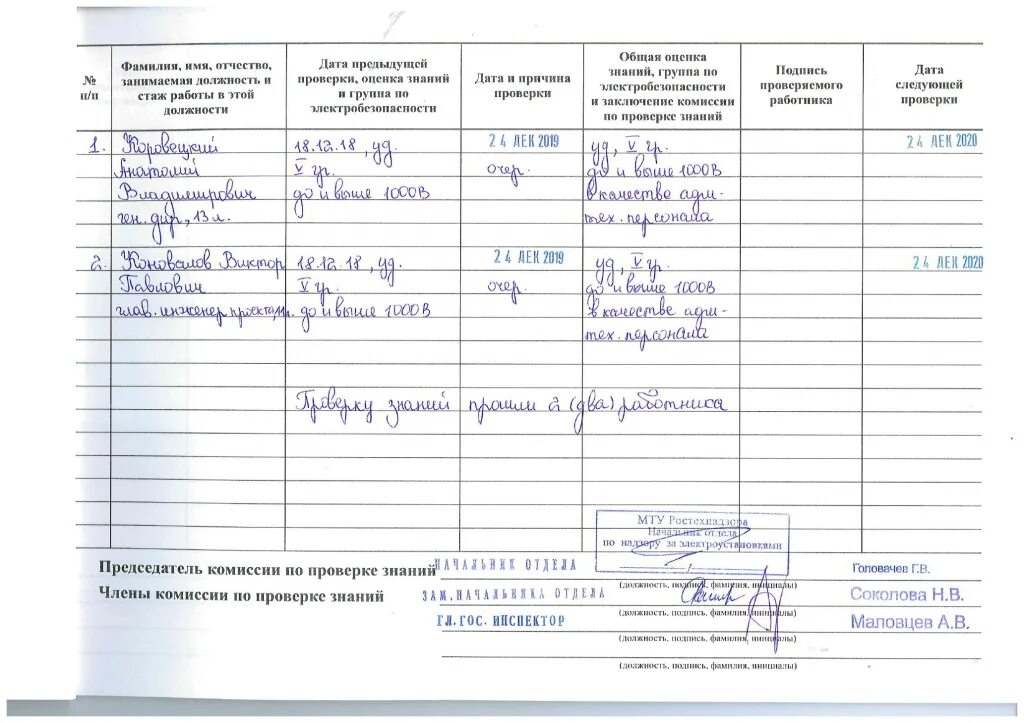 № п/п
Фамилия, имя, отчество, занимаемая должность и стаж работы в этой должности
Дата предыдущей проверки, оценка знаний и группа по электробезопасности
Дата и причина проверки
Общая оценка знаний, группа по электробезопасности и заключение комиссии по проверке знаний
Подпись проверяемого работника
Дата следующей проверки
1. Коровецкий 18.12.18, уд. 24 ДЕК 2019 уд, V гр. 24 ДЕК 2020
Анатолий V гр. очер. до и выше 1000В
Владимирович до и выше 1000В в качестве адм-
ген. дир., 13 л. тех. персонала
2. Коновалов Виктор 18.12.18, уд. 24 ДЕК 2019 уд, V гр. 24 ДЕК 2020
Павлович V гр. очер. до и выше 1000В
глав. инженер проекта, до и выше 1000В в качестве адм-
тех. персонала
Проверку знаний прошли 2 (два) работника
МТУ Ростехнадзора
Начальник отдела
по надзору за электроустановками
Председатель комиссии по проверке знаний НАЧАЛЬНИК ОТДЕЛА Головачев Г.В.
(должность, подпись, фамилия, инициалы)
Члены комиссии по проверке знаний ЗАМ. НАЧАЛЬНИКА ОТДЕЛА Соколова Н.В.
(должность, подпись, фамилия, инициалы)
ГЛ. ГОС. ИНСПЕКТОР Маловцев А.В.
(должность, подпись, фамилия, инициалы)
(должность, подпись, фамилия, инициалы)